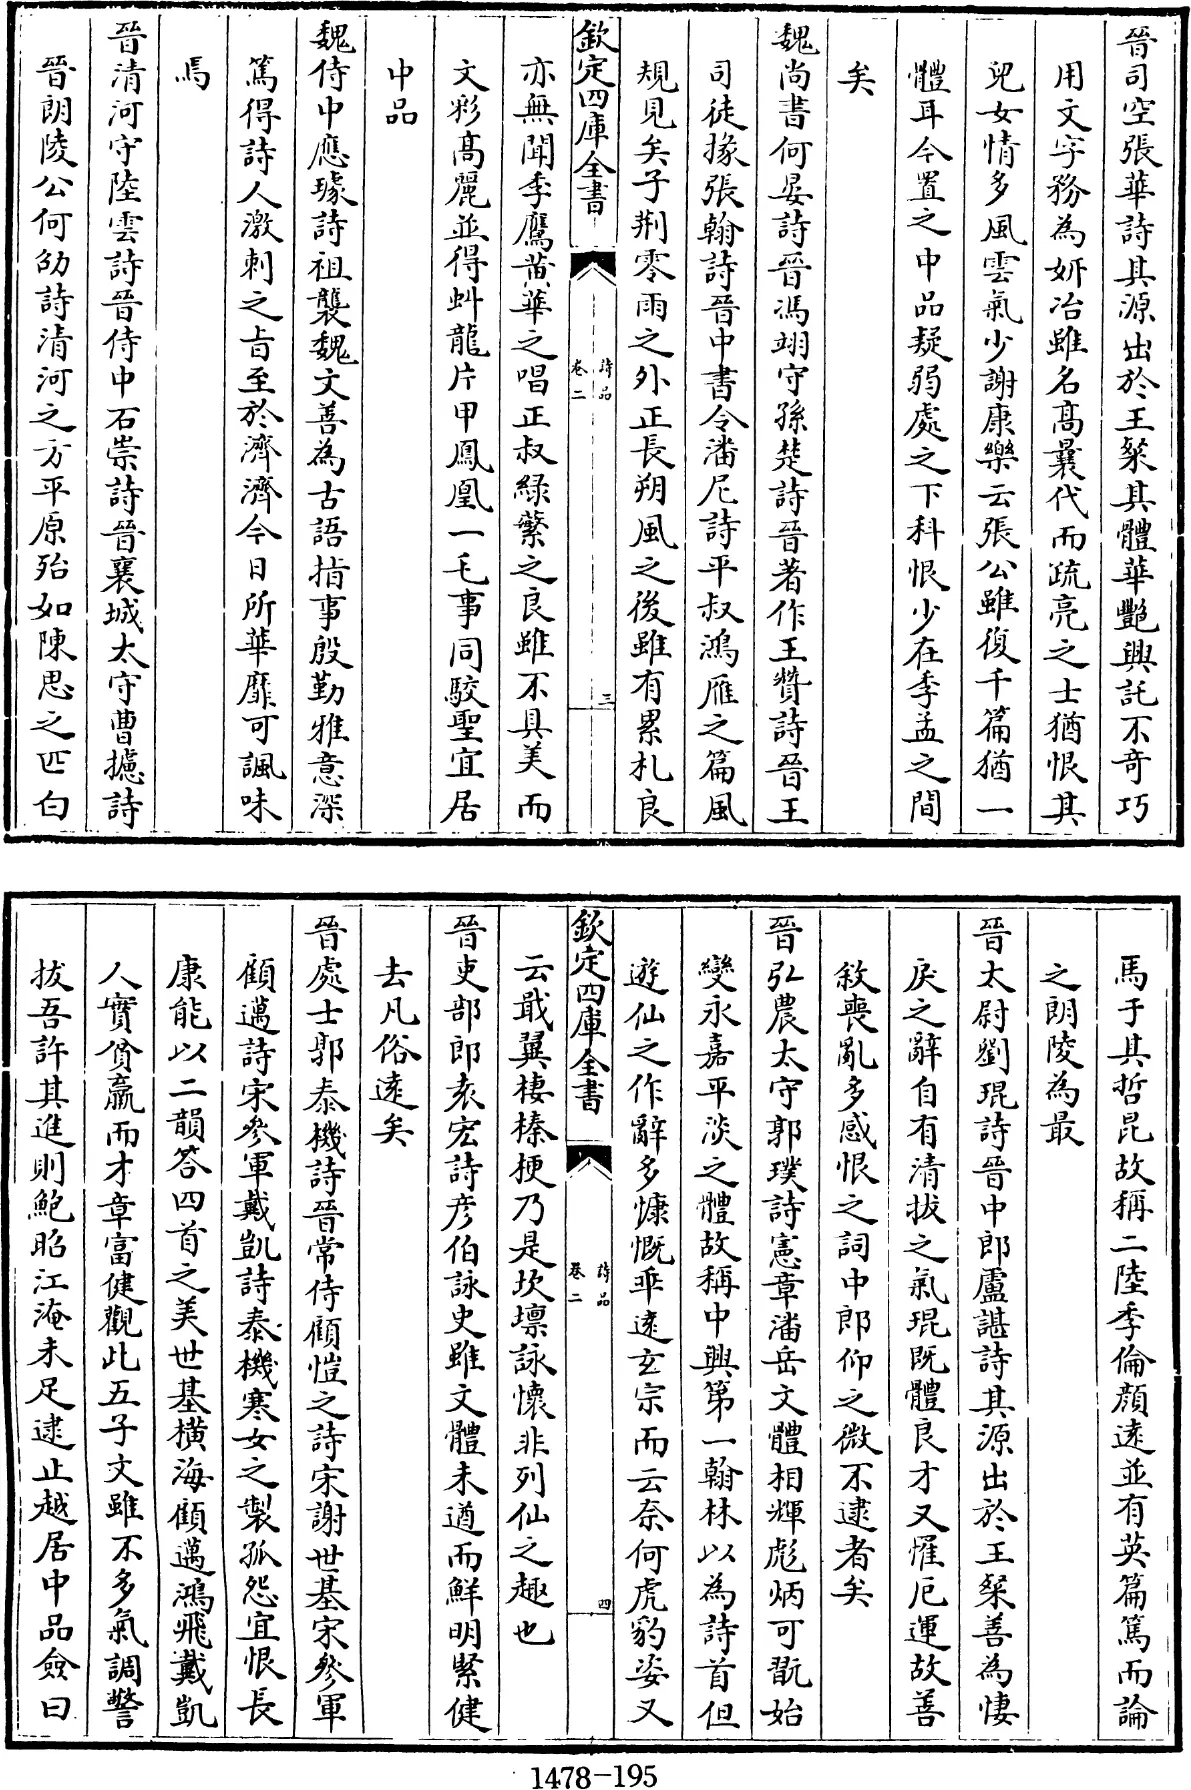 晉司空張華詩其源出於王粲其體華艷興託不奇巧
用文字務為妍冶雖名高曩代而疏亮之士猶恨其
兒女情多風雲氣少謝康樂云張公雖復千篇猶一
體耳今置之中品疑弱處之下科恨少在季孟之間
矣
魏尚書何晏詩晉馮翊守孫楚詩晉著作王贊詩晉王
司徒掾張翰詩晉中書令潘尼詩平叔鴻雁之篇風
規見矣子荆零雨之外正長朔風之後雖有累札良
欽定四庫全書
詩品
卷二
三
亦無聞季鷹黄華之唱正叔緑蘩之良雖不具美而
文彩高麗並得虯龍片甲鳳凰一毛事同駮聖宜居
中品
魏侍中應璩詩祖襲魏文善為古語指事殷勤雅意深
篤得詩人激刺之㫖至於濟濟今日所華靡可諷味
焉
晉清河守陸雲詩晉侍中石崇詩晉襄城太守曹攄詩
晉朗陵公何劭詩清河之方平原殆如陳思之匹白
馬于其哲昆故稱二陸季倫顔逺並有英篇篤而論
之朗陵為最
晉太尉劉琨詩晉中郎盧諶詩其源出於王粲善為悽
戾之辭自有清拔之氣琨既體良才又罹厄運故善
敘喪亂多感恨之詞中郎仰之微不逮者矣
晉弘農太守郭璞詩憲章潘岳文體相輝彪炳可翫始
變永嘉平淡之體故稱中興第一翰林以為詩首但
遊仙之作辭多慷慨乖逺玄宗而云奈何虎豹姿又
欽定四庫全書
詩品
卷二
四
云戢翼棲榛梗乃是坎壈詠懷非列仙之趣也
晉吏部郎袁宏詩彦伯詠史雖文體未遒而鮮明緊健
去凡俗逺矣
晉處士郭泰機詩晉常侍顧愷之詩宋謝世基宋參軍
顧邁詩宋參軍戴凱詩泰機寒女之製孤怨宜恨長
康能以二韻答四首之美世基橫海顧邁鴻飛戴凱
人實貧羸而才章富健觀此五子文雖不多氣調警
拔吾許其進則鮑昭江淹未足逮止越居中品僉曰
1478-195